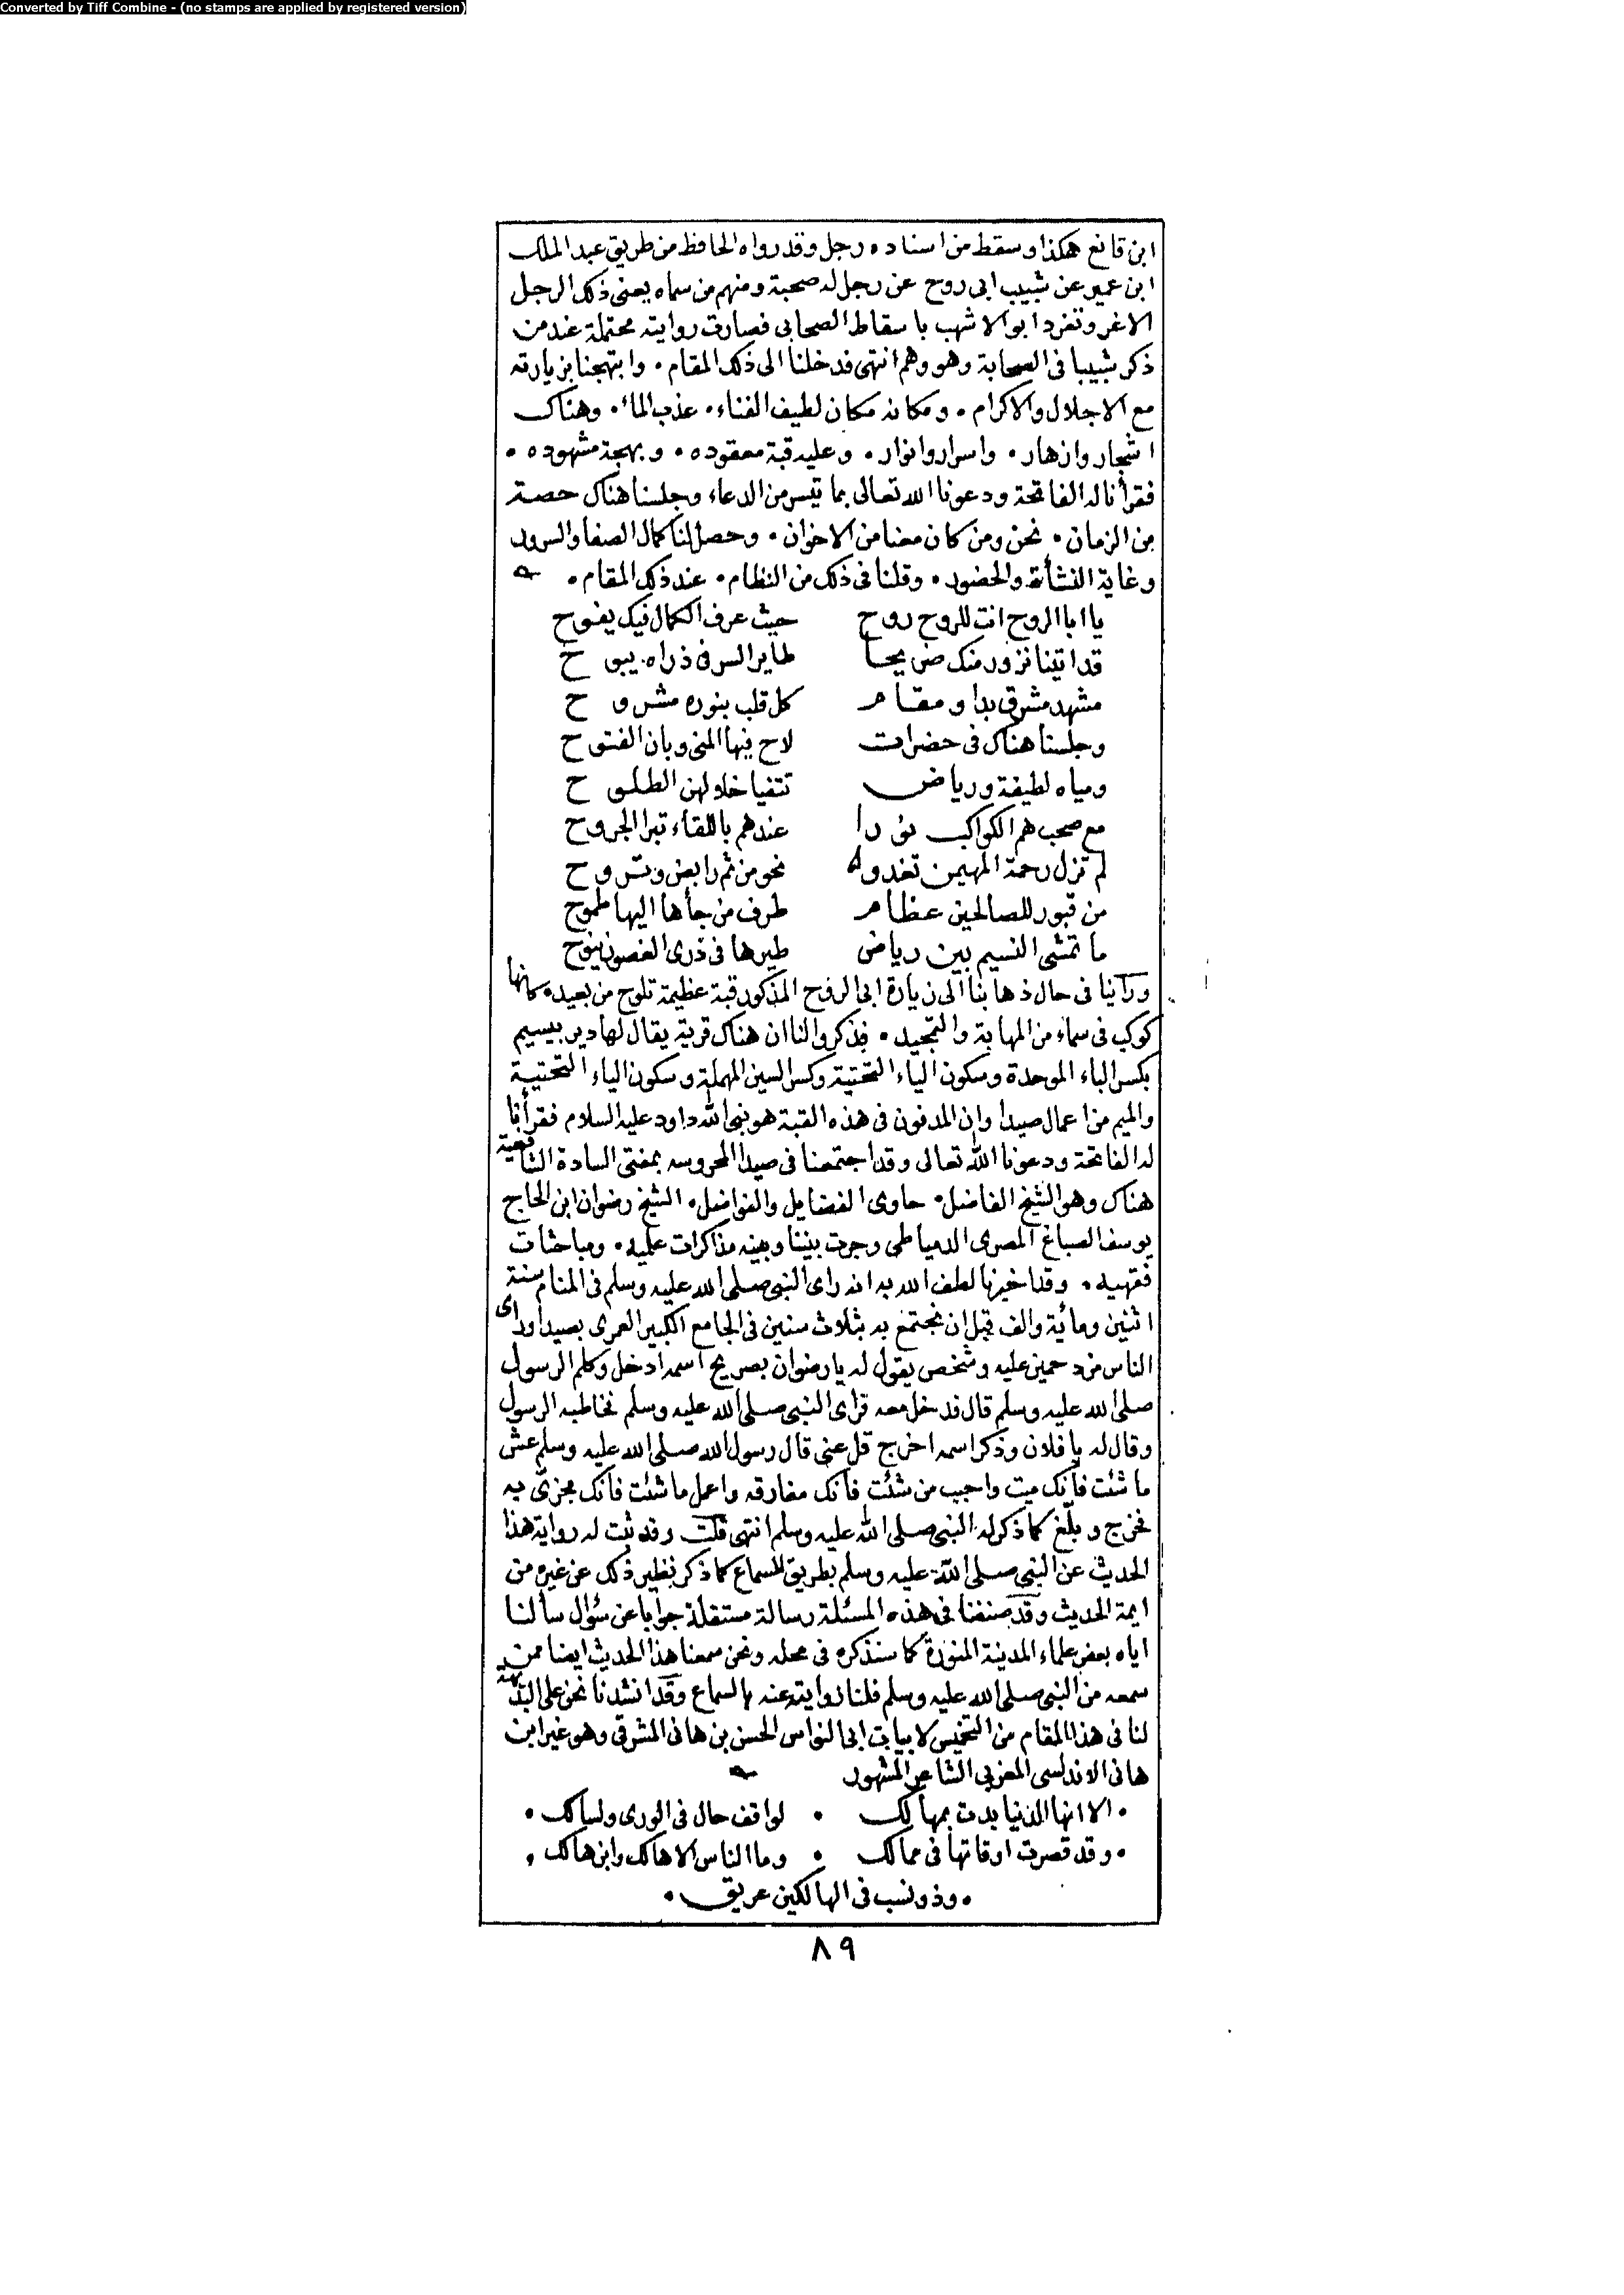 Converted by Tiff Combine - (no stamps are applied by registered version)
ابن قانع هكذا وسقط من اسناده رجل وقد رواه الحافظ من طريق عبد الملك
ابن عمير عن شبيب ابى روح عن رجل له صحبة ومنهم من سماه يعنى ذلك الرجل
الاغر وتفرد ابو الاشهب باسقاط الصحابى فصارت روايته محتملة عند من
ذكر شبيبا فى الصحابة وهو وهم انتهى فدخلنا الى ذلك المقام • وابتهجنا بزيارته
مع الاجلال والاكرام • ومكانه مكان لطيف الفناء • عذب الماء • وهناك
اشجار وازهار • واسرار وانوار • وعليه قبة معقوده • وبهجة مشهوده •
فقرأنا له الفاتحة ودعونا الله تعالى بما تيسر من الدعاء وجلسنا هناك حصة
من الزمان • نحن ومن كان معنا من الاخوان • وحصل لنا كمال الصفا والسرور
وغاية النشأة والحضور • وقلنا فى ذلك من النظام • عند ذلك المقام •
يا ابا الروح انت للروح روح حيث عرف الكمال فيك يفوح
قد اتينا نزور منك ضريحا طاير السر فى ذراه يبوح
مشهد مشرق بدا ومقام كل قلب بنوره مشروح
وجلسنا هناك فى حضرات لاح فيها المنى وبان الفتوح
ومياه لطيفة ورياض تتفيا خلالهن الطلوح
مع صحب هم الكواكب نورا عندهم باللقاء تبرا الجروح
لم تزل رحمة المهيمن تغدو نحو من ثم رابض وتروح
من قبور للصالحين عظام طرف من جأها اليها طموح
ما تمشى النسيم بين رياض طيرها فى ذرى الغصون ينوح
ورأينا فى حال ذهابنا الى زيارة ابى الروح المذكور قبة عظيمة تلوح من بعيد • كانها
كوكب فى سماء من المهابة والتمجيد • فذكروا لنا ان هناك قرية يقال لها دير بيسيم
بكسر الباء الموحدة وسكون الياء التحتية وكسر السين المهملة وسكون الياء التحتية
والميم من اعمال صيدا وان المدفون فى هذه القبة هو نبى الله داود عليه السلام فقرأنا
له الفاتحة ودعونا الله تعالى وقد اجتمعنا فى صيدا المحروسه بمفتى السادة الشافعية
هناك وهو الشيخ الفاضل • حاوى الفضايل والفواضل • الشيخ رضوان ابن الحاج
يوسف الصباغ المصرى الدمياطى وجرت بيننا وبينه مذاكرات علميه • ومباحثات
فقهيه • وقد اخبرنا لطف الله به انه راى النبى صلى الله عليه وسلم فى المنام سنة
اثنين ومائية والف قبل ان نجتمع به بثلاث سنين فى الجامع الكبير العمرى بصيدا وراى
الناس مزدحمين عليه وشخص يقول له يا رضوان بصريح اسمه ادخل وكلم الرسول
صلى الله عليه وسلم قال فدخل معه فراى النبى صلى الله عليه وسلم فخاطبه الرسول
وقال له يا فلان وذكر اسمه اخرج قل عنى قال رسول الله صلى الله عليه وسلم عش
ما شئت فأنك ميت واحبب من شئت فأنك مفارقه واعمل ما شئت فأنك مجزى به
فخرج وبلّغ كما ذكر له النبى صلى الله عليه وسلم انتهى قلت وقد ثبت له رواية هذا
الحديث عن النبى صلى الله عليه وسلم بطريق السماع كما ذكر نظير ذلك عن غيره من
ايمة الحديث وقد صنفنا فى هذه المسئلة رسالة مستقلة جوابا عن سؤال سألنا
اياه بعض علماء المدينة المنورة كما سنذكره فى محله ونحن سمعنا هذا الحديث ايضا ممن
سمعه من النبى صلى الله عليه وسلم فلنا روايته عنه بالسماع وقد انشدنا نحن على البديهة
لنا فى هذا المقام من التخميس لابيات ابى النواس الحسن بن هانى المشرقى وهو غير ابن
هانى الاندلسى المغربى الشاعر المشهور
• الا انها الدنيا بدت بمهالك • لواقف حال فى الورى ولسالك •
• وقد قصرت اوقاتها فى ممالك • وما الناس الا هالك وابن هالك •
• وذو نسب فى الهالكين عريق •
٨٩